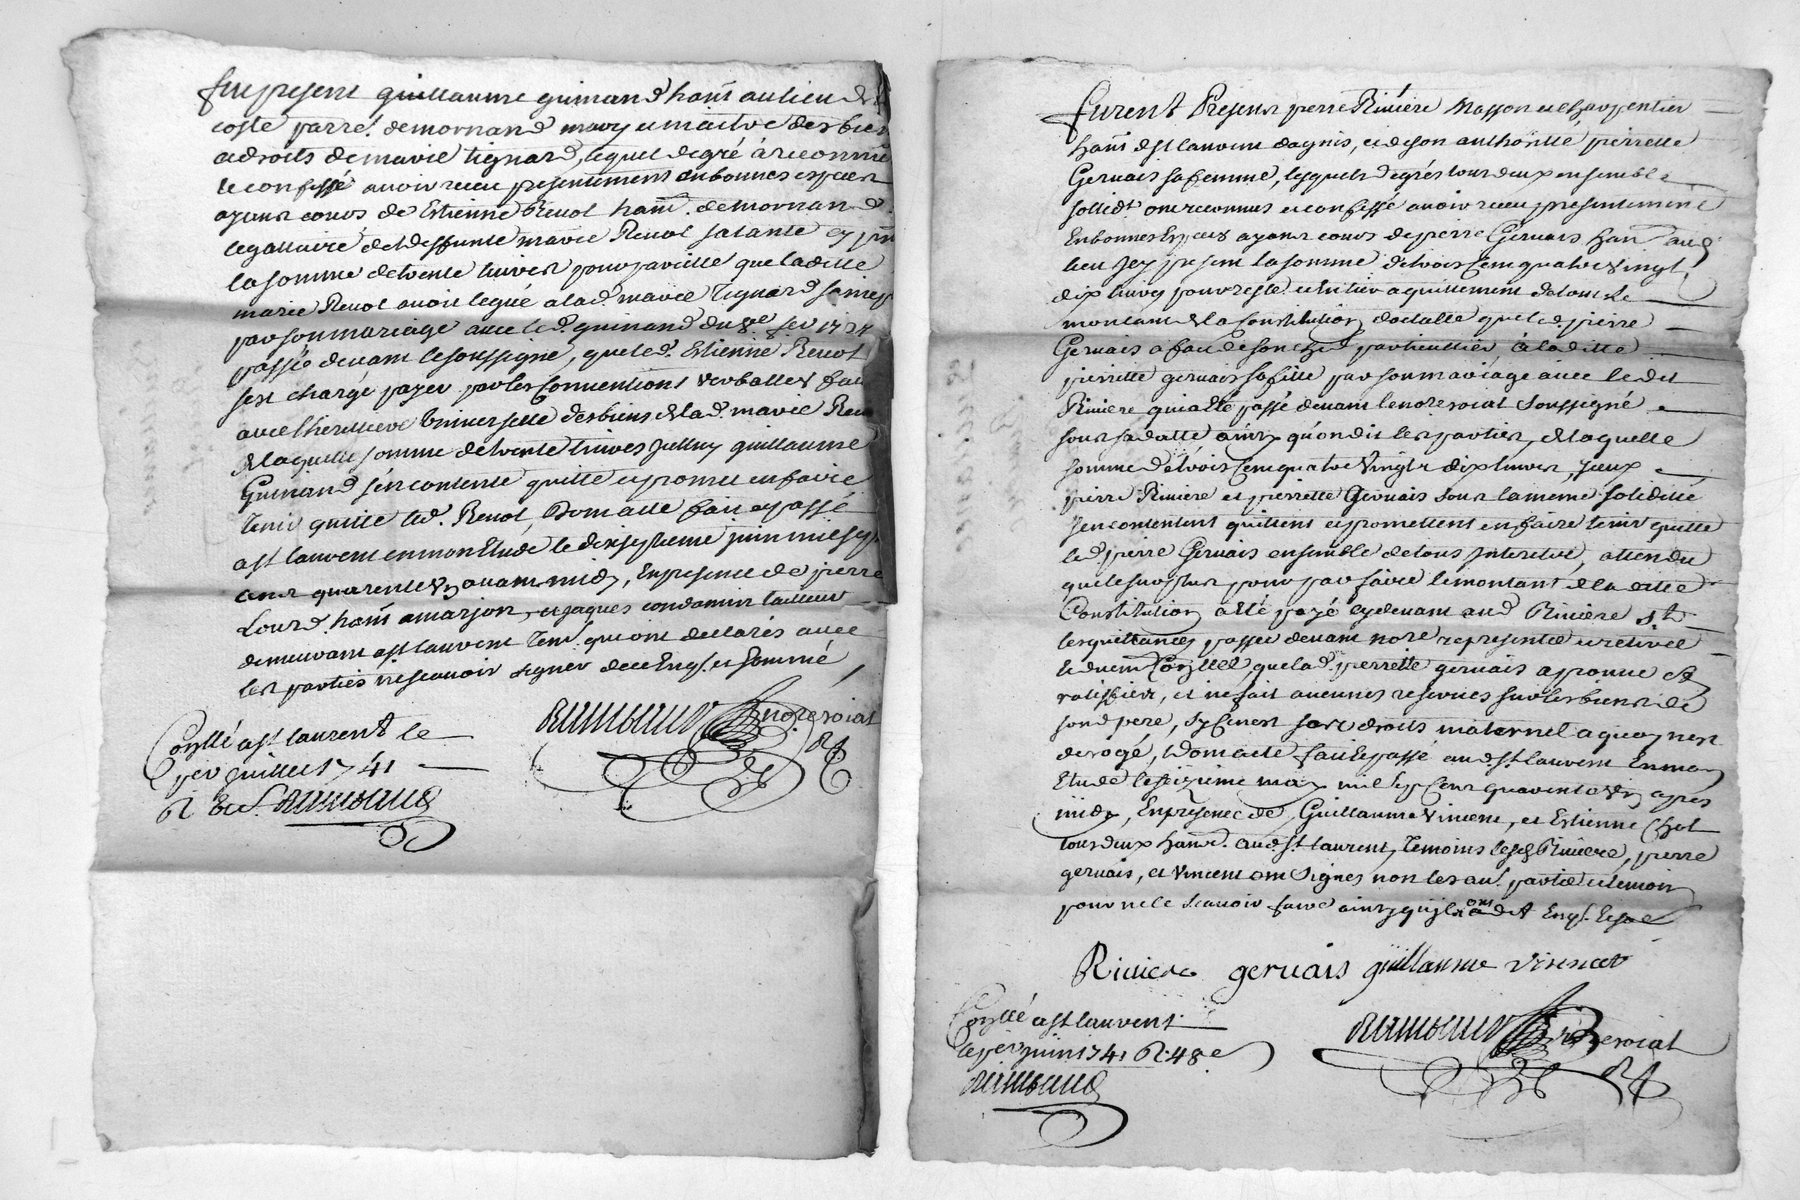 fut present guillaume guinand hant. au lieu de la
coste parre. de mornand mary et maitre des biens
et droits de marie tignard, lequel de gré à reconnu
et confessé avoir receu presentement en bonnes especes
ayant cours de Estienne Benot hant. de mornand
legattaire de deffunte marie Benot sa tante cy pnt
la somme de trente livres pour pareille que laditte
marie Benot avoit legué a lad. marie Tignard sa niepce
par son mariage avec led. guinand du
passé devant le soussigné, que led. Estienne Benot
sest chargé payer par les Conventions verballes fait
avec l'heritiere Universelle des biens de lad. marie Benot
de laquelle somme de trente livres guillaume
Guinand s'en contente quitte et promet en faire
tenir quitte led. Benot, Dont acte fait et passé
a st laurent en mon Etude le dix septieme juin mil sept
cent quarente un avant midy, En presence de pierre
hant. a marjon, et jaques condamin tailleur
demeurant a st laurent Tem. qui ont declarés avec
les parties ne scavoir signer de ce Enq. et sommé
Raimbaud nore royal
Conllé a st laurent le
1er juillet 1741
R Raimbaud
furent Presens pierre Rivière Masson et Charpentier
hant. de st laurent dagnis, et de son authorité pierrette
Gervais sa femme, lesquels de grés tous deux ensemble
sollidt. ont reconnus et confessé avoir receu presentement
En bonnes Especes ayant cours de pierre Gervais hant. aud.
lieu Icy present la somme de trois Cent quatre vingt
dix livres pour reste et entier aquittement de tout le
montant de la Constitution dotalle que led. pierre
Gervais a fait de son chef particullier à laditte
pierrette gervais sa fille par son mariage avec ledit
Riviere qui a Eté passé devant le nore roial Soussigné
sous sa datte ainsy qu'on dit les parties, de laquelle
somme de trois Cent quatre Vingts dix livres, Iceux
pierre Riviere et pierrette Gervais sous la meme solidité
s'en contentent quittent et promettent en faire tenir quitte
led. pierre Gervais ensemble de tous Interets, attendu
que le surplus pour parfaire le montant de la ditte
Constitution a Eté payé cy devant aud. Riviere
les quittances passées devant nore representée et retirée
que lad. pierrette gervais aprouve et
ratiffier, et ne fait aucunes reserves sur les biens de
sond. pere, sy ce n'est ses droits maternel a quoy n'est
derogé, Dont acte fait et passé aud. st laurent En mon
Etude le seizieme may mil sept Cent quarente un apres
midy, En presence de Guillaume Vincent, et Estienne Chol
tous deux hant. aud. st laurent, temoins lesd. Riviere, pierre
gervais, et Vincent ont Signés non les aut. partie et temoin
pour ne le scavoir faire ainsy qu'ils ont dit Enq.
Riviere gervais guillaume vinsent
Conllé a st laurent
le 1er juin 1741 R. 48s
Raimbaud
Raimbaud nore roial